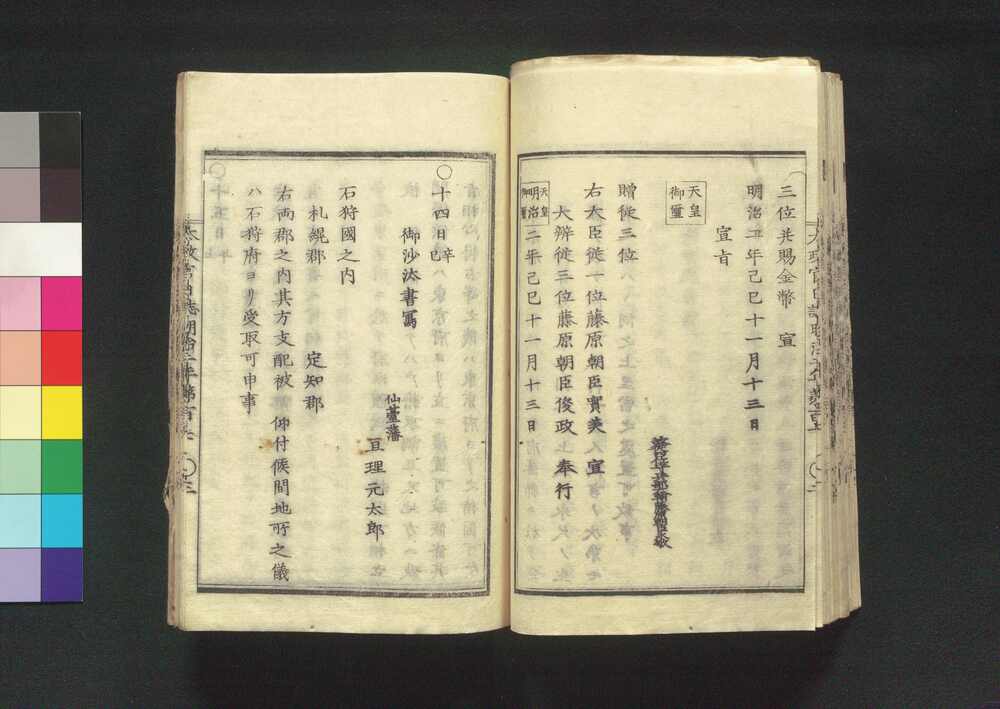 三位并賜金幣　宣
明治二年己巳十一月十三日
宣旨
天皇
御璽
贈從三位
右大臣從一位藤原朝臣實美　宣
大辨從三位藤原朝臣俊政　奉行
天皇
御璽
明治二年己巳十一月十三日
○十四日辛巳
御沙汰書寫
仙臺藩
亘理元太郎
石狩國之内
札縨郡　定知郡
右両郡之内其方支配被　仰付候間地所之儀
ハ石狩府ヨリ受取可申事